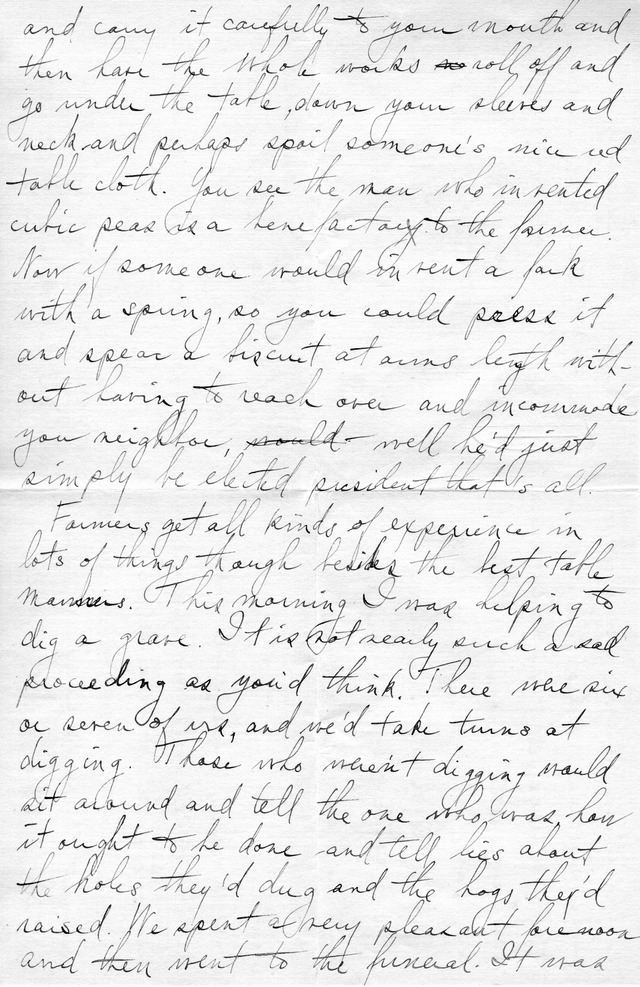 and carry it carefully to your mouth and
then have the whole works so roll off and
go under the table, down your sleeves and
neck and perhaps spoil someone's nice red
table cloth. You see the man who invented
cubic peas is a benefactory to the farmer.
Now if someone would invent a fork
with a spring, so you could press it
and spear a biscuit at arms length with-
out having to reach over and incommode
you neighbor, would - well he'd just
simply be elected president that's all.
Farmers get all kinds of experience in
lots of things though besides the best table
manners. This morning I was helping to
dig a grave. It is not nearly such a sad
proceeding as you'd think. There were six
or seven of us, and we'd take turns at
digging. Those who weren't digging would
sit around and tell the one who was, how
it ought to be done and tell lies about
the holes they'd dug and the hogs they'd
raised. We spent a very pleasant forenoon
and then went to the funeral. It was